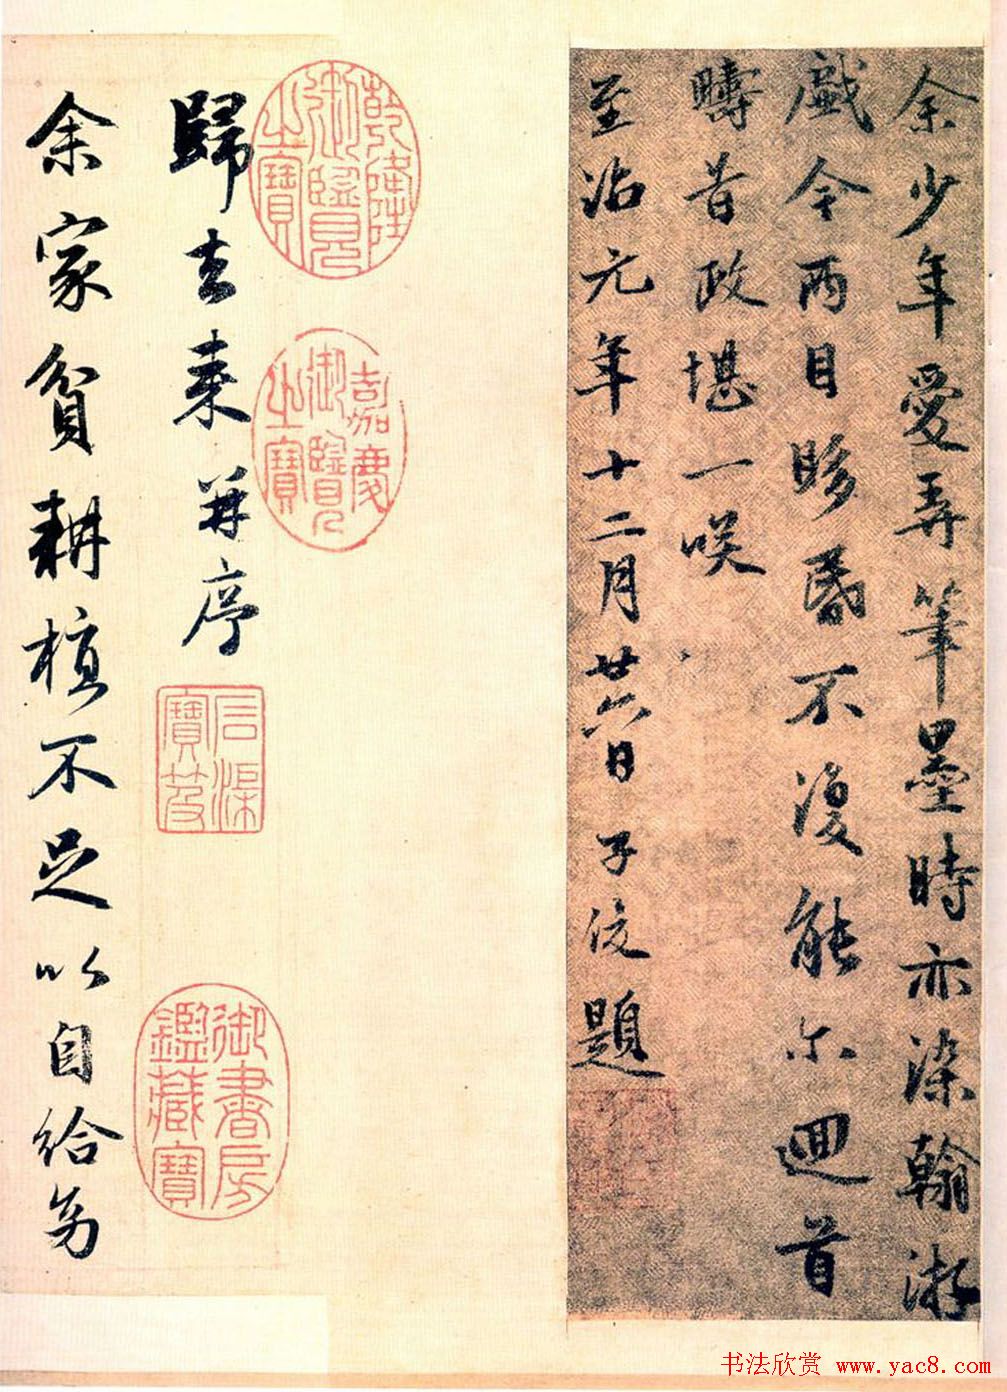 余少年愛弄筆墨時亦染翰游
戲今两目眵昏不復能尔迴首
疇昔政堪一咲
至治元年十二月廿六日子俊題
乾隆御覽之寶
嘉慶御覽之寶
歸去来并序
石渠寶笈
御書房鑑藏寶
余家貧耕植不足以自給幼
书法欣赏 www.yac8.com